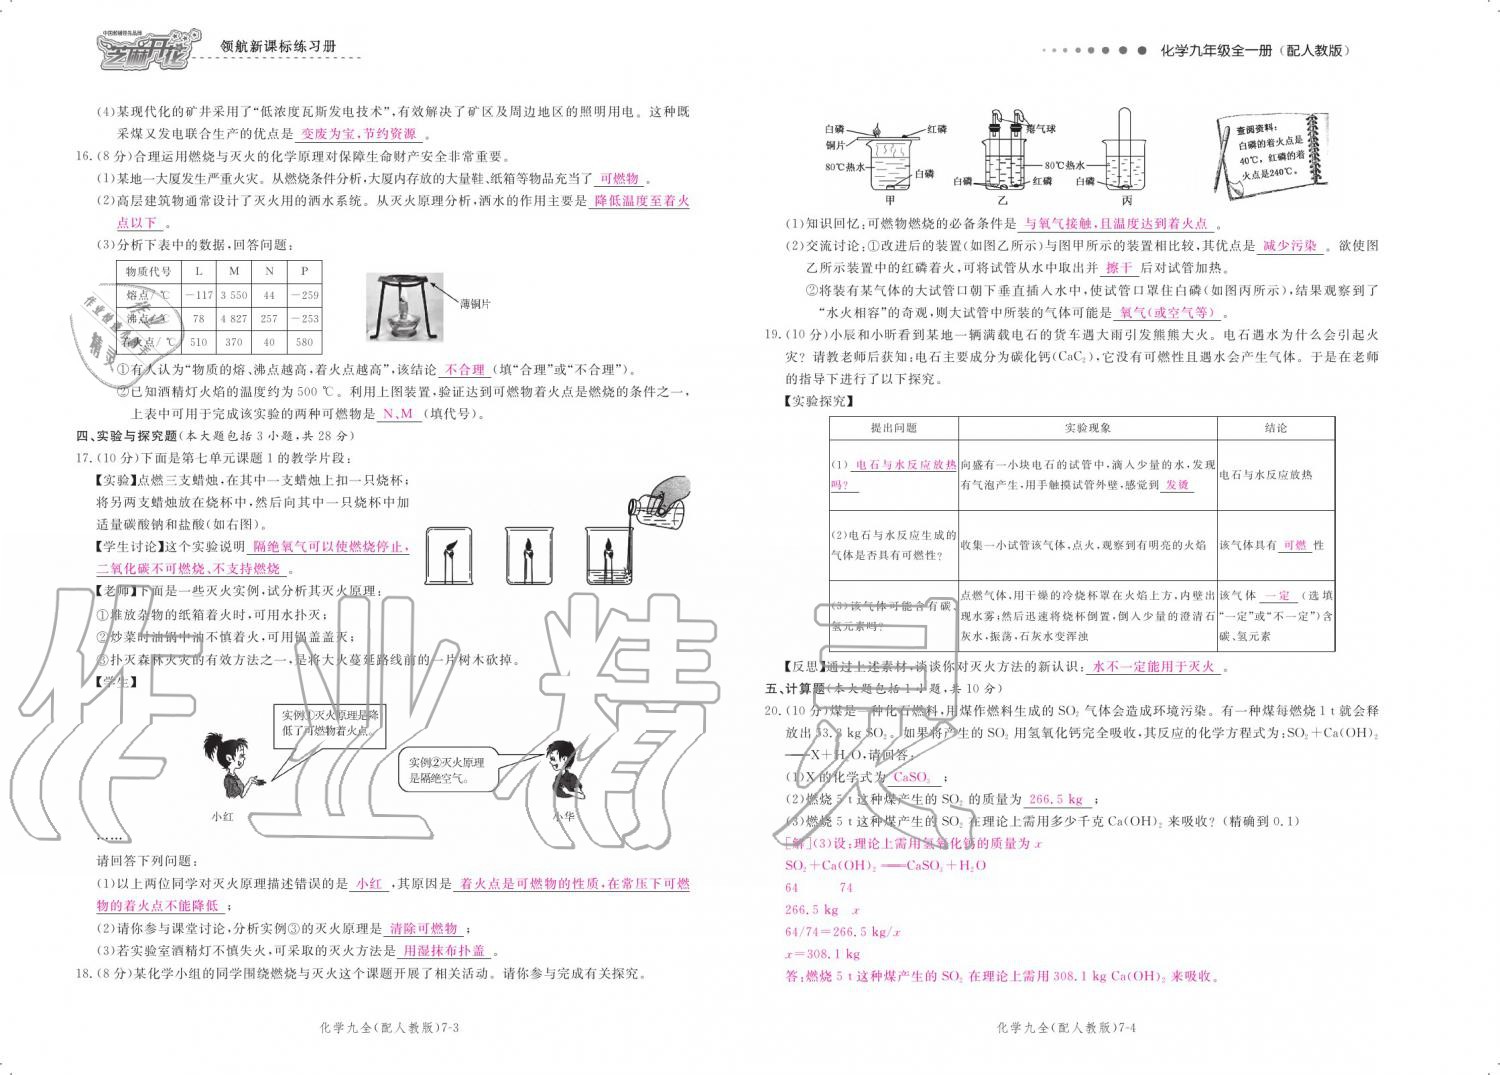 中国教辅领先品牌
芝麻开花
领航新课标练习册
化学九年级全一册（配人教版）
(4)某现代化的矿井采用了“低浓度瓦斯发电技术”,有效解决了矿区及周边地区的照明用电。这种既
采煤又发电联合生产的优点是 变废为宝,节约资源 。
16.(8分)合理运用燃烧与灭火的化学原理对保障生命财产安全非常重要。
(1)某地一大厦发生严重火灾。从燃烧条件分析,大厦内存放的大量鞋、纸箱等物品充当了 可燃物 。
(2)高层建筑物通常设计了灭火用的洒水系统。从灭火原理分析,洒水的作用主要是 降低温度至着火
点以下 。
(3)分析下表中的数据,回答问题:
物质代号 L M N P
熔点/℃ －117 3 550 44 －259
沸点/℃ 78 4 827 257 －253
着火点/℃ 510 370 40 580
薄铜片
①有人认为“物质的熔、沸点越高,着火点越高”,该结论 不合理 (填“合理”或“不合理”)。
②已知酒精灯火焰的温度约为500 ℃。利用上图装置,验证达到可燃物着火点是燃烧的条件之一,
上表中可用于完成该实验的两种可燃物是 N、M (填代号)。
四、实验与探究题(本大题包括3小题,共28分)
17.(10分)下面是第七单元课题1的教学片段:
【实验】点燃三支蜡烛,在其中一支蜡烛上扣一只烧杯;
将另两支蜡烛放在烧杯中,然后向其中一只烧杯中加
适量碳酸钠和盐酸(如右图)。
【学生讨论】这个实验说明 隔绝氧气可以使燃烧停止,
二氧化碳不可燃烧、不支持燃烧 。
【老师】下面是一些灭火实例,试分析其灭火原理:
①堆放杂物的纸箱着火时,可用水扑灭;
②炒菜时油锅中油不慎着火,可用锅盖盖灭;
③扑灭森林火灾的有效方法之一,是将大火蔓延路线前的一片树木砍掉。
【学生】
实例①灭火原理是降
低了可燃物着火点。
实例②灭火原理
是隔绝空气。
小红
小华
……
请回答下列问题:
(1)以上两位同学对灭火原理描述错误的是 小红 ,其原因是 着火点是可燃物的性质,在常压下可燃
物的着火点不能降低 ;
(2)请你参与课堂讨论,分析实例③的灭火原理是 清除可燃物 ;
(3)若实验室酒精灯不慎失火,可采取的灭火方法是 用湿抹布扑盖 。
18.(8分)某化学小组的同学围绕燃烧与灭火这个课题开展了相关活动。请你参与完成有关探究。
化学九全(配人教版)7-3
白磷 红磷
铜片
80℃热水
白磷
甲
瘪气球
白磷 红磷
乙
80℃热水
白磷
丙
查阅资料:
白磷的着火点是
40℃,红磷的着
火点是240℃。
(1)知识回忆:可燃物燃烧的必备条件是 与氧气接触,且温度达到着火点 。
(2)交流讨论:①改进后的装置(如图乙所示)与图甲所示的装置相比较,其优点是 减少污染 。欲使图
乙所示装置中的红磷着火,可将试管从水中取出并 擦干 后对试管加热。
②将装有某气体的大试管口朝下垂直插入水中,使试管口罩住白磷(如图丙所示),结果观察到了
“水火相容”的奇观,则大试管中所装的气体可能是 氧气(或空气等) 。
19.(10分)小辰和小昕看到某地一辆满载电石的货车遇大雨引发熊熊大火。电石遇水为什么会引起火
灾? 请教老师后获知:电石主要成分为碳化钙(CaC₂),它没有可燃性且遇水会产生气体。于是在老师
的指导下进行了以下探究。
【实验探究】
提出问题 实验现象 结论
(1) 电石与水反应放热
吗?
向盛有一小块电石的试管中,滴入少量的水,发现
有气泡产生,用手触摸试管外壁,感觉到 发烫
电石与水反应放热
(2)电石与水反应生成的
气体是否具有可燃性?
收集一小试管该气体,点火,观察到有明亮的火焰
该气体具有 可燃 性
(3)该气体可能含有碳、
氢元素吗?
点燃气体,用干燥的冷烧杯罩在火焰上方,内壁出
现水雾;然后迅速将烧杯倒置,倒入少量的澄清石
灰水,振荡,石灰水变浑浊
该气体 一定 (选填
“一定”或“不一定”)含
碳、氢元素
【反思】通过上述素材,谈谈你对灭火方法的新认识: 水不一定能用于灭火 。
五、计算题(本大题包括1小题,共10分)
20.(10分)煤是一种化石燃料,用煤作燃料生成的SO₂气体会造成环境污染。有一种煤每燃烧1 t就会释
放出53.3 kg SO₂。如果将产生的SO₂用氢氧化钙完全吸收,其反应的化学方程式为:SO₂＋Ca(OH)₂
══X＋H₂O,请回答:
(1)X的化学式为 CaSO₃ ;
(2)燃烧5 t这种煤产生的SO₂的质量为 266.5 kg ;
(3)燃烧5 t这种煤产生的SO₂在理论上需用多少千克Ca(OH)₂来吸收?(精确到0.1)
[解](3)设:理论上需用氢氧化钙的质量为x
SO₂＋Ca(OH)₂══CaSO₃＋H₂O
64 74
266.5 kg x
64/74=266.5 kg/x
x=308.1 kg
答:燃烧5 t这种煤产生的SO₂在理论上需用308.1 kg Ca(OH)₂来吸收。
化学九全(配人教版)7-4
作业精灵